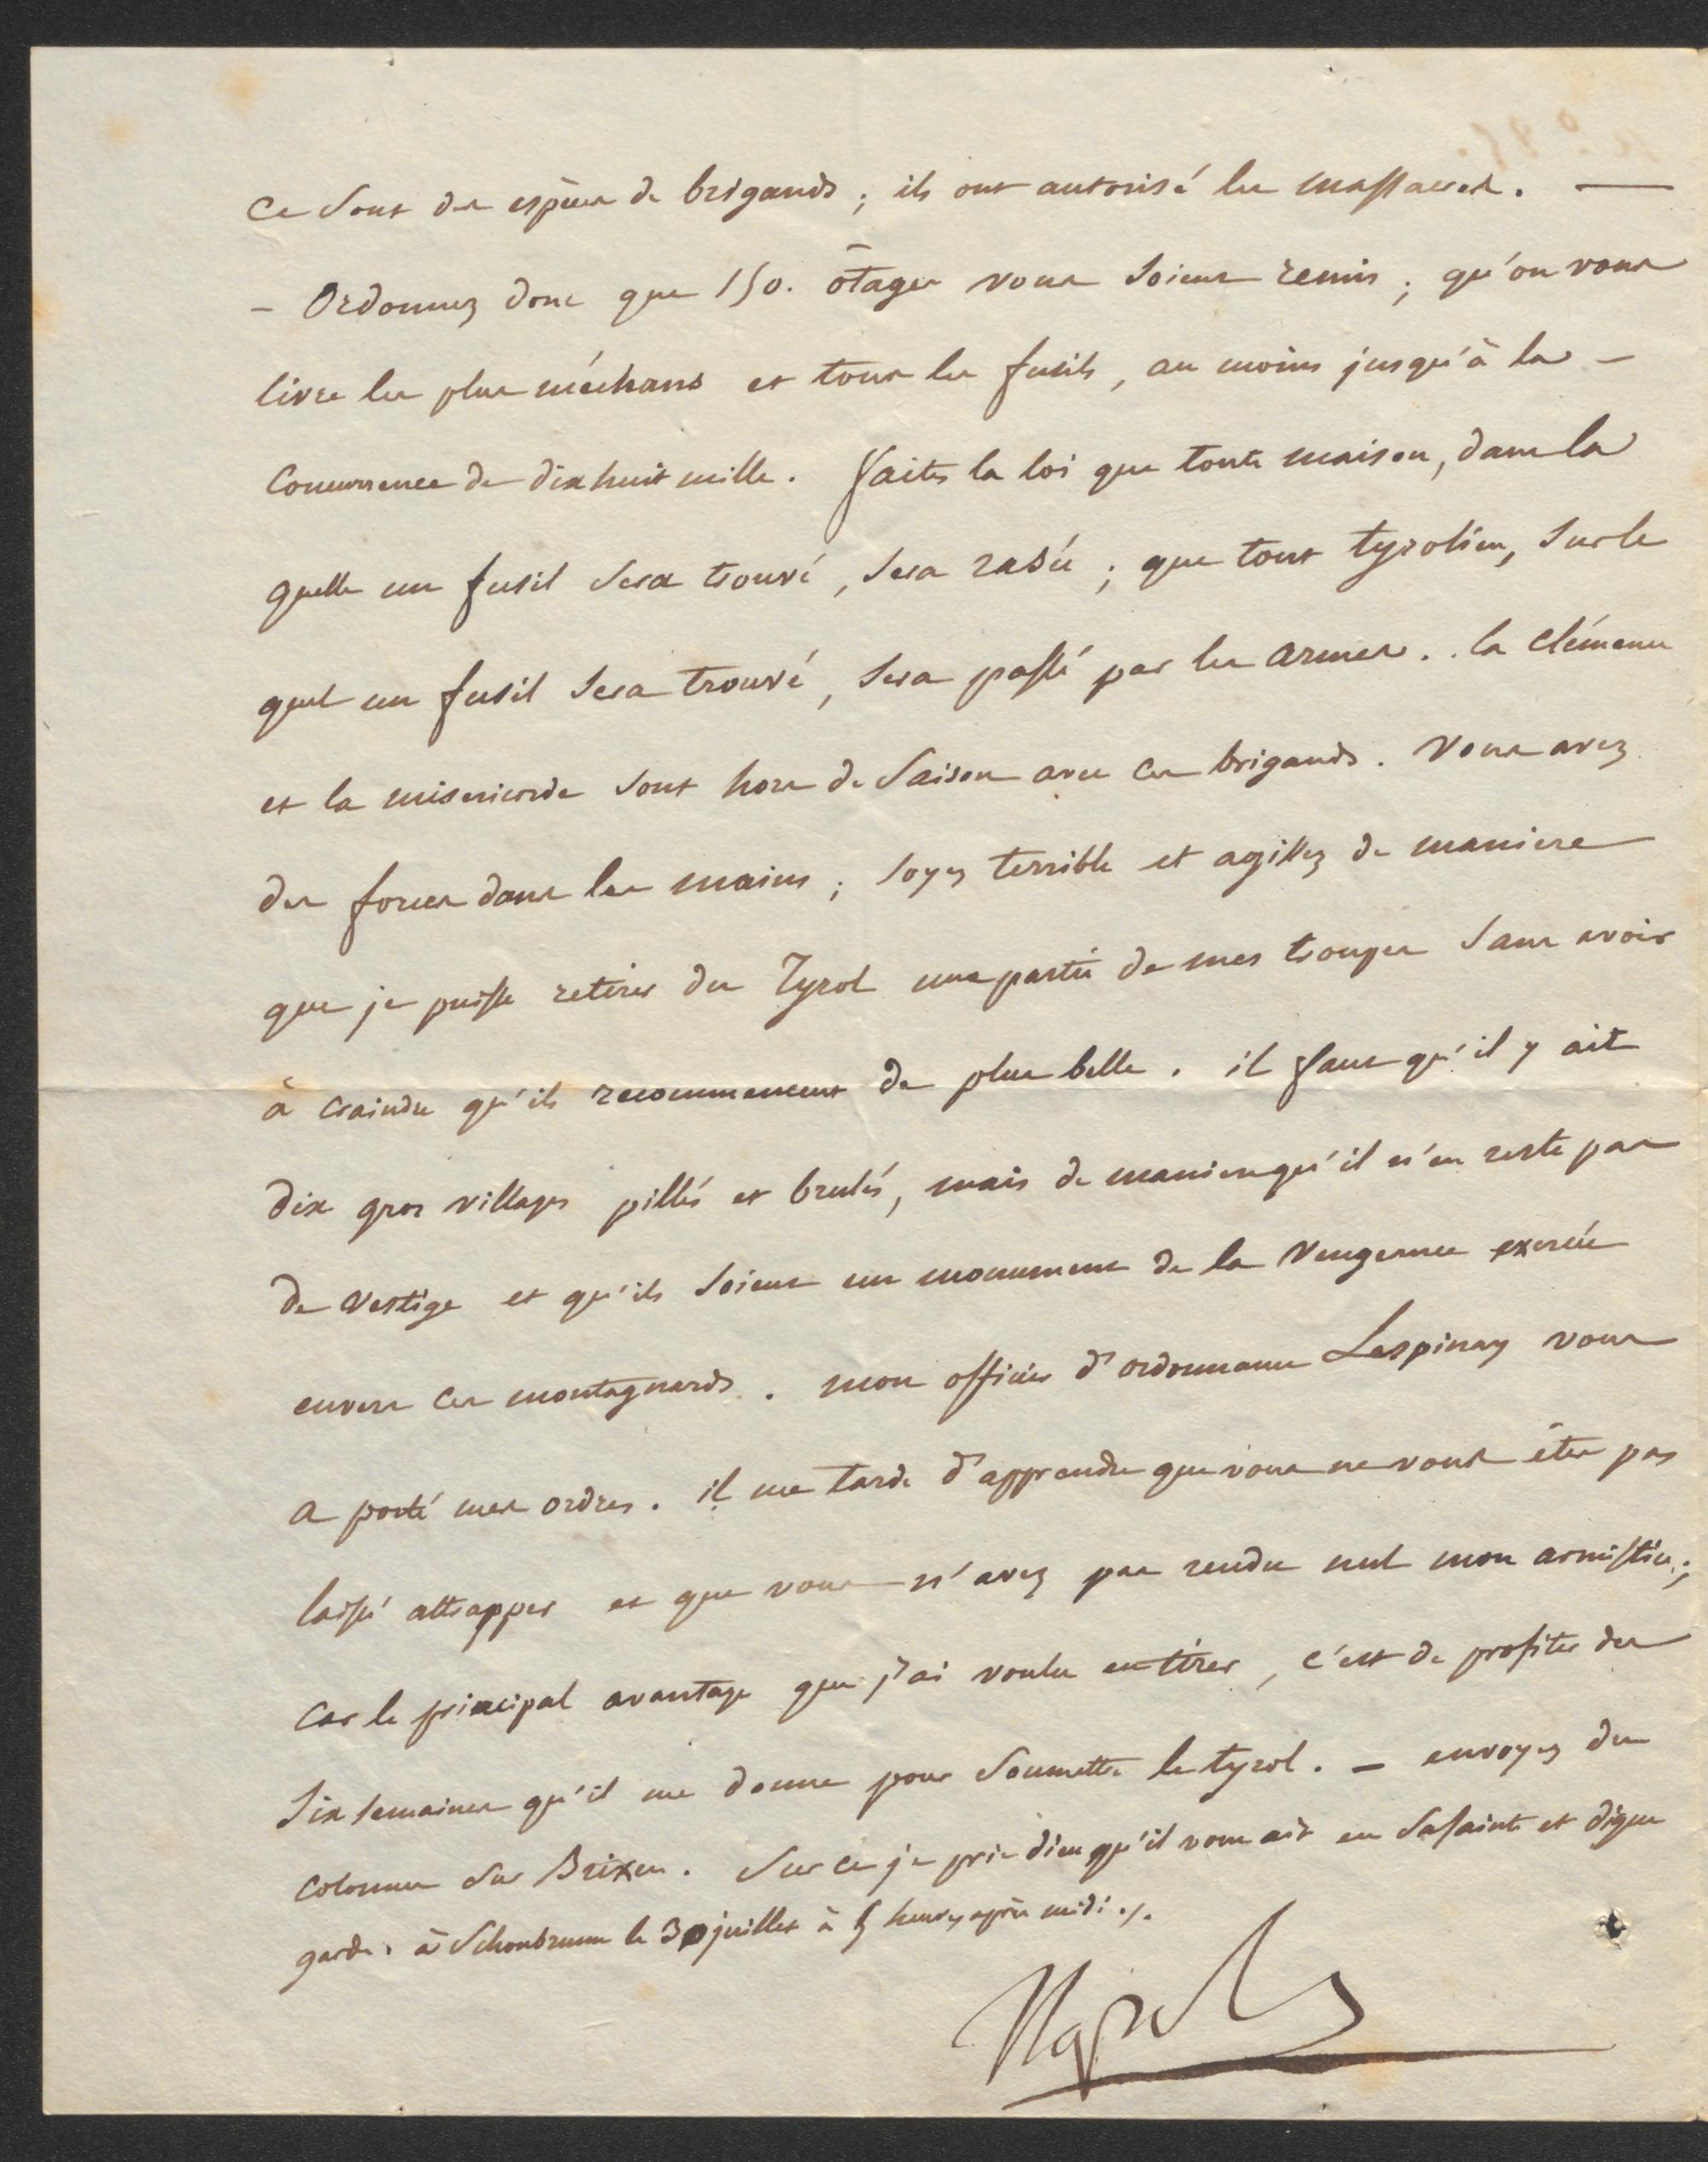 Ce sont des espèces de brigands ; ils ont autorisé les massacres. —
— Ordonnez donc que 150. ôtages vous soient remis ; qu'on vous
livre les plus méchans et tous les fusils, au moins jusqu'à la —
concurrence de dix huit mille. faites la loi que toute maison, dans la
quelle un fusil sera trouvé, sera rasée ; que tout tyrolien, sur le
quel un fusil sera trouvé, sera passé par les armes. . la clémence
et la misericorde sont hors de saison avec ces brigands. Vous avez
des forces dans les mains ; soyez terrible et agissez de maniere
que je puisse retirer du Tyrol une partie de mes troupes sans avoir
à craindre qu'ils recommencent de plus belle. il faut qu'il y ait
dix gros villages pillés et brulés, mais de maniere qu'il n'en reste pas
de vestige et qu'ils soient un monument de la vengeance exercée
envers ces montagnards. mon officier d'ordonnance Lespinay vous
a porté mes ordres. il me tarde d'apprendre que vous ne vous êtes pas
laissé attrapper et que vous n'avez pas rendu nul mon armistice ;
car le principal avantage que j'ai voulu en tirer, c'est de profiter des
six semaines qu'il me donne pour soumettre le tyrol. — envoyez des
colonnes sur Brixen. Sur ce je prie dieu qu'il vous ait en sa sainte et digne
garde. à Schonbrunn le 30 juillet à 5 heures après midi ./.
Napole